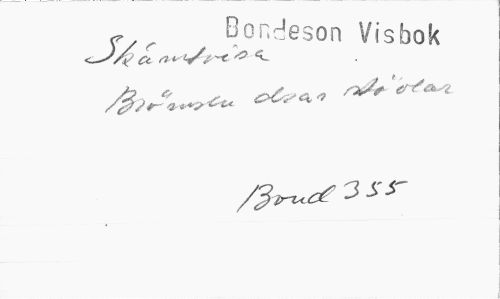 Bondeson Visbok
Skämtvisa
Brömsen drar stövlar
Bond 355